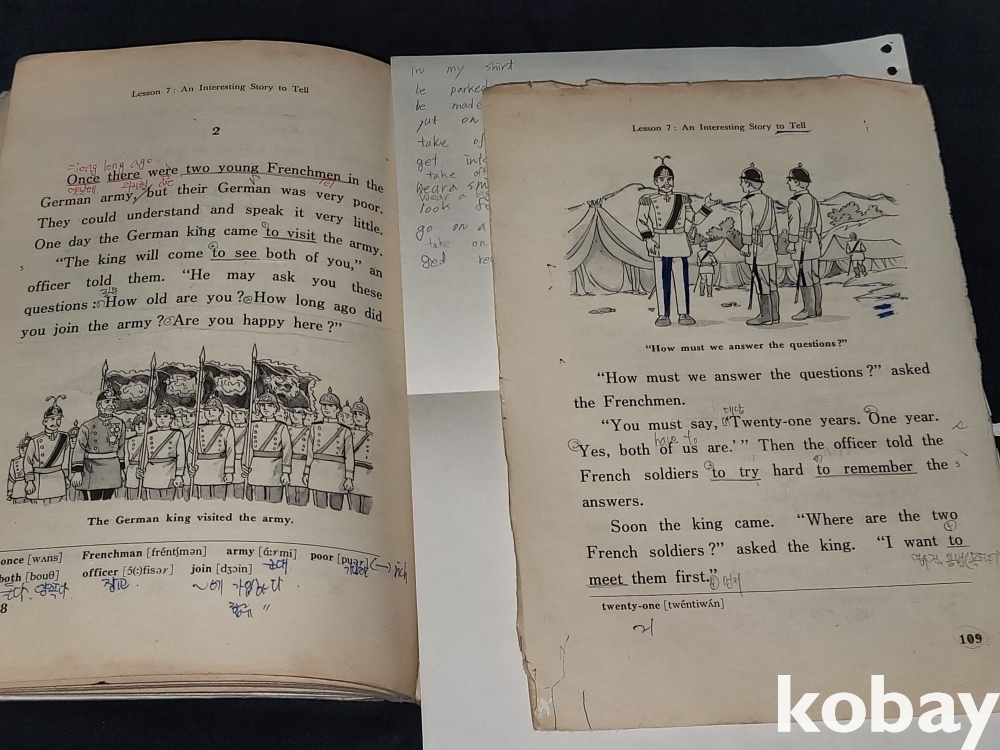 Lesson 7: An Interesting Story to Tell
2
=long long ago
Once there were two young Frenchmen in the
옛날에
German army, but their German was very poor.
They could understand and speak it very little.
One day the German king came to visit the army.
"The king will come to see both of you," an
officer told them. "He may ask you these
questions: ① How old are you? ② How long ago did
you join the army? ③ Are you happy here?"
The German king visited the army.
once [wʌns] Frenchman [fréntʃmən] army [ɑ́ːrmi] poor [puər] ↔ rich
군대
both [bouθ] officer [ɔ́(ː)fisər] join [dʒɔin]
장교 ~에 가입하다
8
in my shirt
be parked
be made
put on
take of
get into
take off
wear a
look
go on a
take on
get
Lesson 7: An Interesting Story to Tell
"How must we answer the questions?"
"How must we answer the questions?" asked
the Frenchmen.
대답
"You must say, 'Twenty-one years. One year.
have to
Yes, both of us are.'" Then the officer told the
French soldiers to try hard to remember the
answers.
Soon the king came. "Where are the two
French soldiers?" asked the king. "I want to
meet them first."
먼저
twenty-one [twéntiwʌ́n]
109
kobay